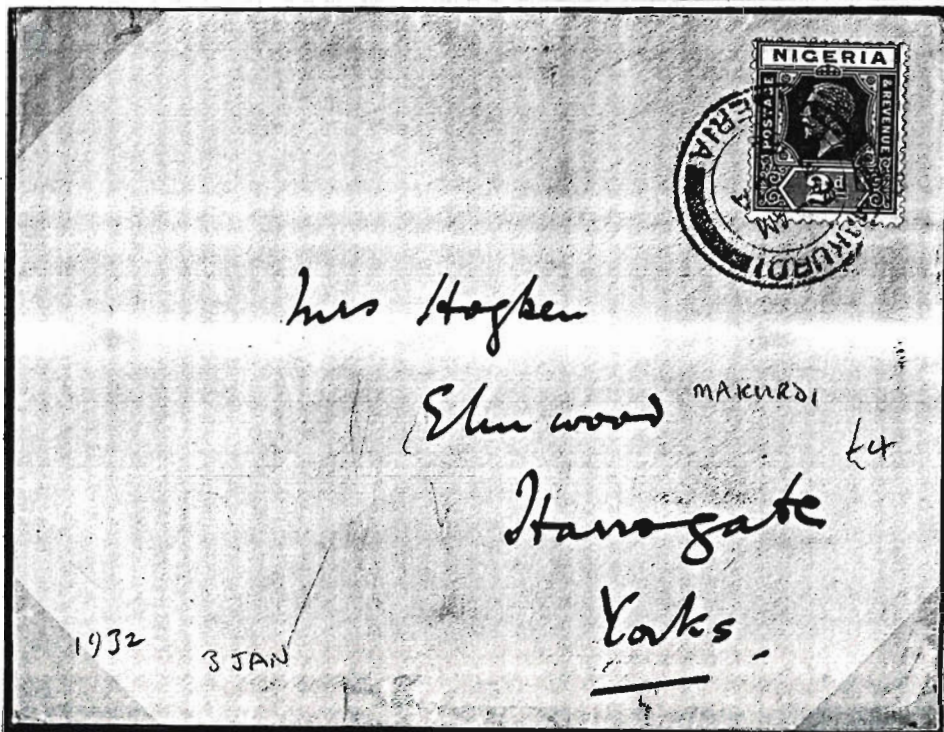 NIGERIA
POSTAGE
& REVENUE
2d
MAKURDI
NIGERIA
AM
Mrs Hogben
Elmwood
MAKURDI
£4
Harrogate
Yorks
1932
3 JAN